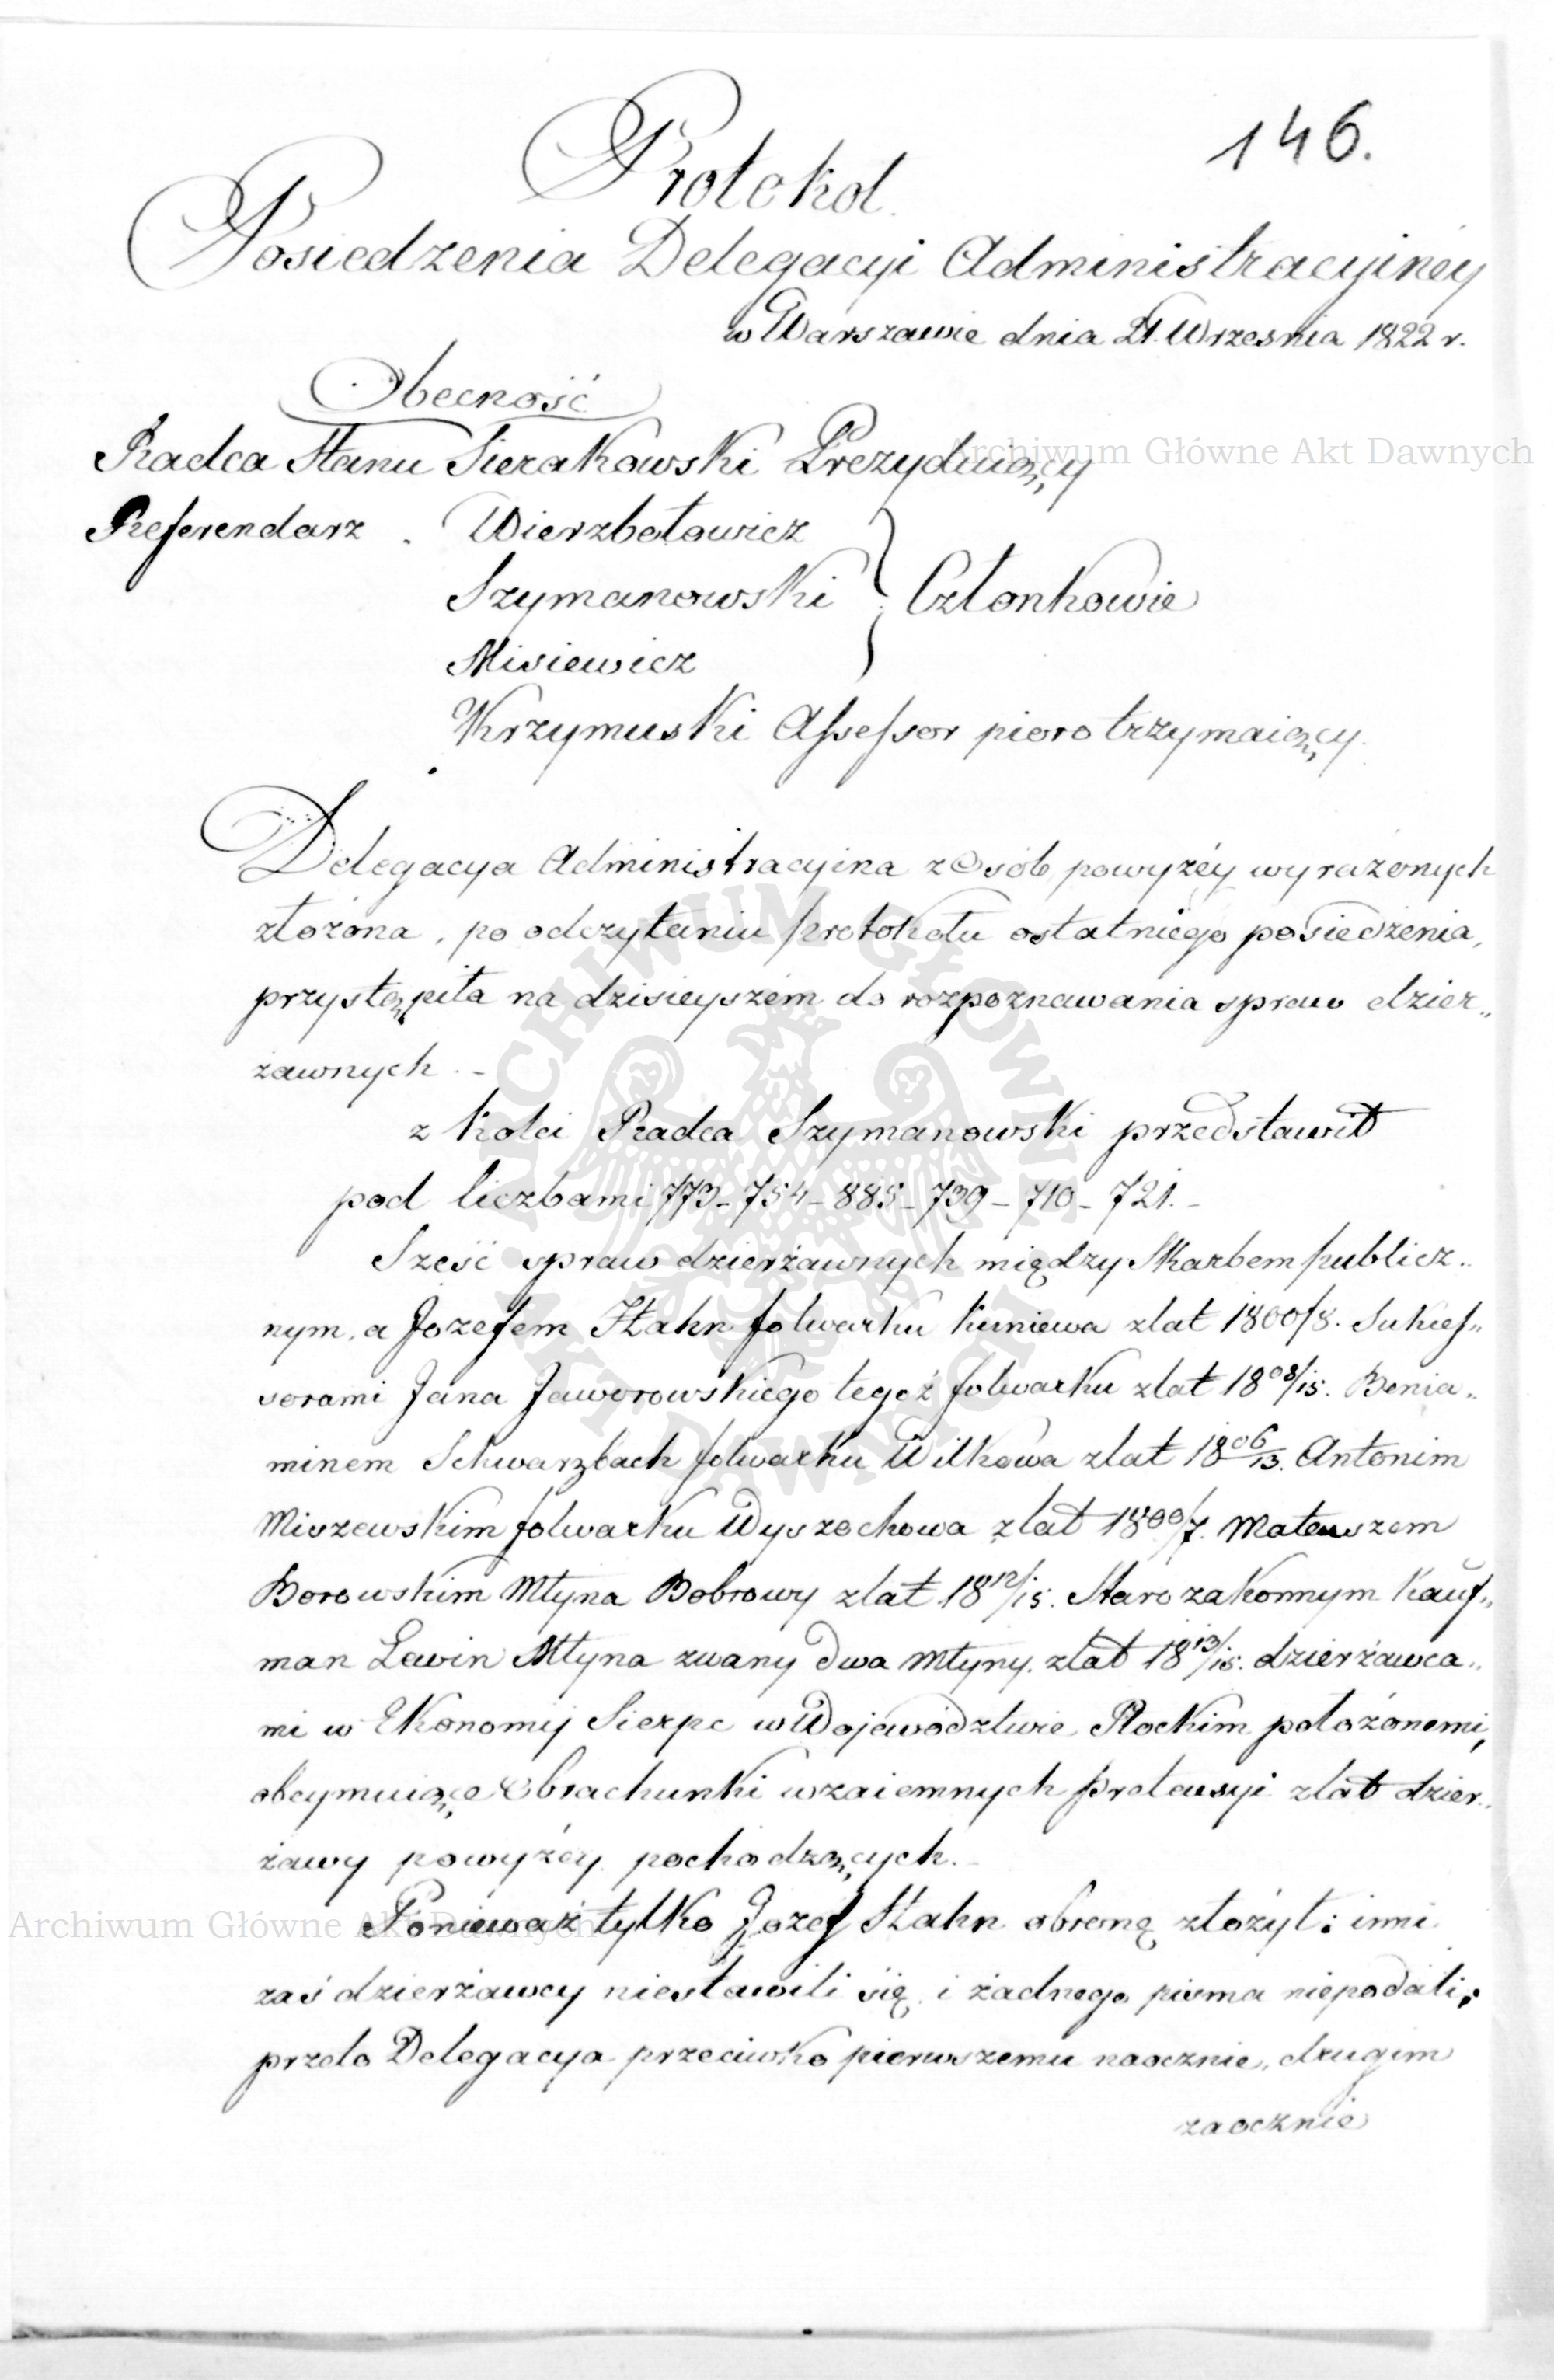 146.
Protokol
Posiedzenia Delegacyi Administracyiney
w Warszawie dnia 21. Wrzesnia 1822 r.
Obecność
Radca Stanu Sierakowski Prezyduiący
Referendarz Wierzbołowicz
Szymanowski } Członkowie
Misiewicz
Krzymuski Assessor pioro trzymaiący.
Delegacya Administracyina z Osób powyżéy wyrażonych
złożona, po odczytaniu protokołu ostatniego posiedzenia,
przystąpiła na dzisieyszém do rozpoznawania spraw dzier„
żawnych. -
z kolei Radca Szymanowski przedstawił
pod liczbami 773 - 754 - 885 - 739 - 710 - 721. -
Sześć spraw dzierżawnych między Skarbem publicz„
nym, a Jozefem Hahn folwarku z lat 1800/8. Sukces„
sorami Jana Jaworowskiego tegoż folwarku z lat 1808/15. Benia„
minem Schwarzbach folwarku Wilkowa z lat 1806/13. Antonim
Miszewskim folwarku Wyszochowa z lat 1800/7. Mateuszem
Borowskim Młyna Bobrowy z lat 1812/15. Staro zakonnym Kauf„
man Lewin Młyna zwany dwa młyny. z lat 1813/15. dzierżawca„
mi w Ekonomij Sierpc w Wojewodztwie Płockim położonemi,
obeymuiące Obrachunki wzaiemnych pretensyi z lat dzier„
żawy powyżéy pochodzących.
Ponieważ tylko Jozef Hahn obronę złożył: inni
zaś dzierżawcy niestawili się, i żadnego pisma niepodali;
przeto Delegacya przeciwko pierwszemu naocznie, drugim
zaocznie
Archiwum Główne Akt Dawnych
Archiwum Główne Akt Dawnych
ARCHIWUM GŁÓWNE AKT DAWNYCH